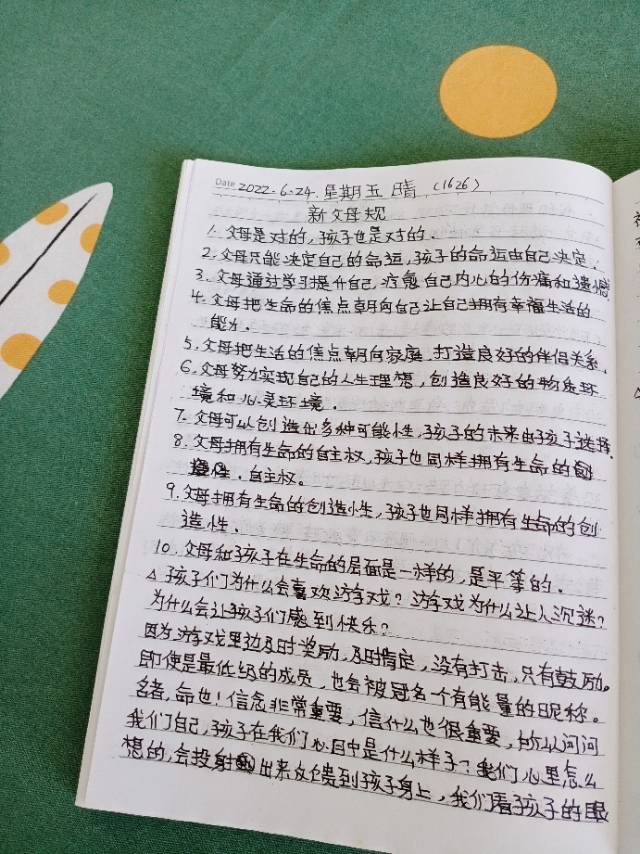 Date 2022.6.24. 星期五 晴 (1626)
新父母规
1. 父母是对的,孩子也是对的.
2. 父母只能决定自己的命运,孩子的命运由自己决定.
3. 父母通过学习提升自己,疗愈自己内心的伤痛和遗憾
4. 父母把生命的焦点朝向自己让自己拥有幸福生活的
能力.
5. 父母把生活的焦点朝向家庭,打造良好的伴侣关系.
6. 父母努力实现自己的人生理想,创造良好的物质环
境和心灵环境.
7. 父母可以创造出多种可能性,孩子的未来由孩子选择.
8. 父母拥有生命的自主权,孩子也同样拥有生命的
自主权。
9. 父母拥有生命的创造性,孩子也同样拥有生命的创
造性.
10. 父母和孩子在生命的层面是一样的,是平等的.
△ 孩子们为什么会喜欢游戏?游戏为什么让人沉迷?
为什么会让孩子们感到快乐?
因为游戏里边及时奖励,及时肯定,没有打击,只有鼓励。
即使是最低级的成员,也会被冠名一个有能量的昵称。
名者,命也!信念非常重要,信什么也很重要,所以问问
我们自己,孩子在我们心目中是什么样子?我们心里怎么
想的,会投射出来反馈到孩子身上,我们看孩子的眼